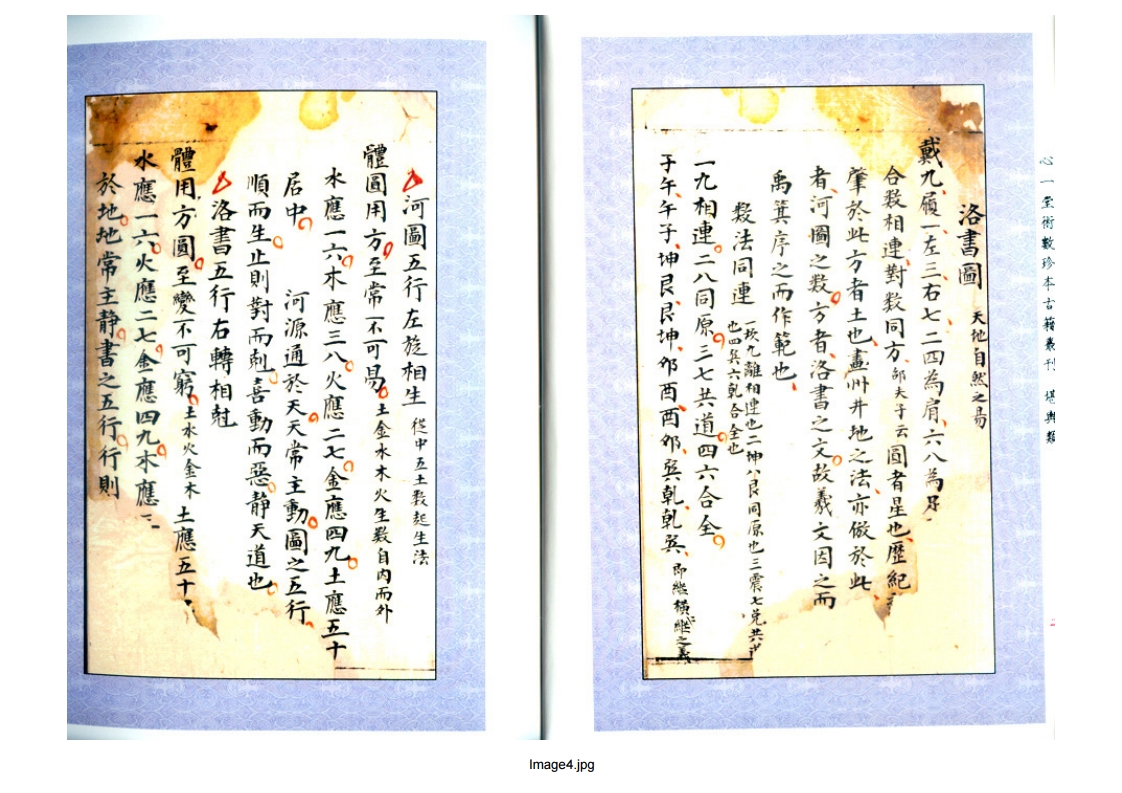 心一堂術數珍本古籍叢刊 堪輿類
洛書圖 天地自然之易
戴九履一左三右七二四為肩六八為足
合数相連對数同方邵夫子云圓者星也歷紀
肇於此方者土也畫州井地之法亦倣於此
者河圖之数方者洛書之文故羲文因之而
禹箕序之而作範也
数法同連 一坎九離相連也二坤八艮同原也三震七兌共
也四巽六乾合全也
一九相連二八同原三七共道四六合全
子午午子坤艮艮坤夘酉酉夘巽乾乾巽 即縱橫維之義
河圖五行左旋相生 從中五土数起生法
體圓用方至常不可易 土金水木火生数自內而外
水應一六木應三八火應二七金應四九土應五十
居中 河源通於天天常主動圖之五行
順而生止則對而剋喜動而惡静天道也
洛書五行右轉相尅
體用方圓至變不可窮 土水火金木 土應五十
水應一六火應二七金應四九木應三
於地地常主静書之五行行則
Image4.jpg